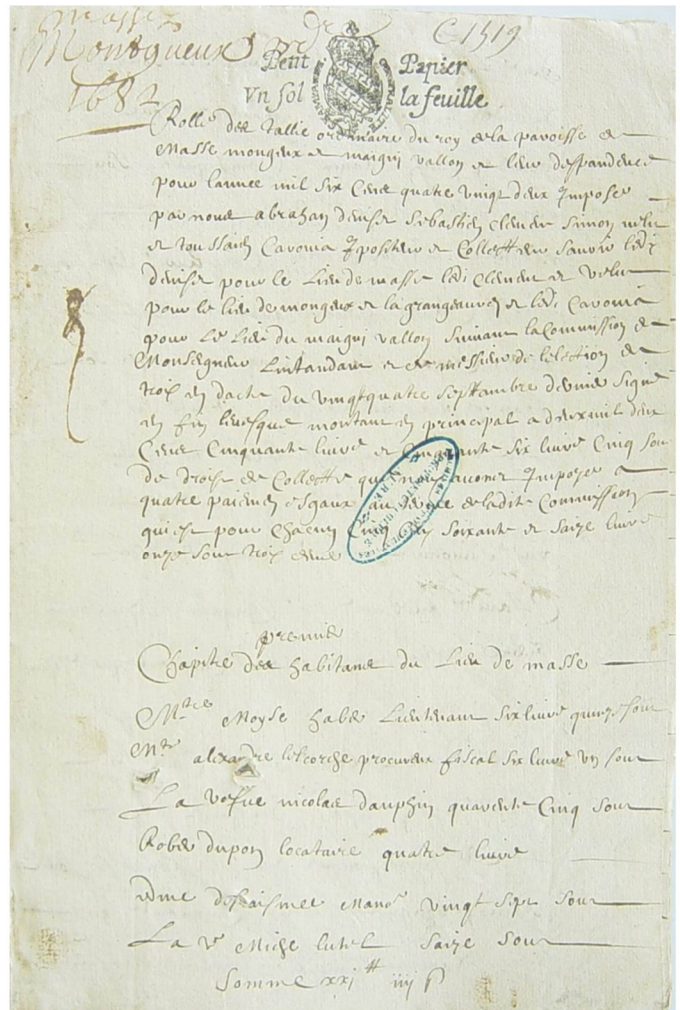 Masse
Montgueux
1682
C 1519
Petit Papier
Vn sol la feuille
Rolle des Tallie ordinaire du roy de la paroisse de
Masse mongeux et maigni vallon et lieu despandence
pour lannee mil six cens quatre vingt deux Imposee
par nous abrahan denise Sebastien clemen Simon velu
et toussain Cavonia Jposteur et Collecteur Savoir ledi
denise pour le Lieu de masse ledi Clemen et velu
pour le lieu de mongeux et la grangeauroy et ledi Cavonia
pour Le Lieu du maigni vallon Suivant la Commission de
Monseigneur Lintandant et de messieurs de lelection de
troix en datte du vingt quatre Septtambre dernier Signe
en fin levesque montant en principal a deux mil deux
Cens Cinquante livres et Cinquante Six livre Cinq Sou
de droist de Collecte que nous avons Imposee a
quatre paiemens esgaux au desire de ladite Commission
qui est pour Chacun Cinq cens Soixante et Saize livre
onze Sour troix denie
premie
Chapitre des habitans du Lieu de masse
Mtre Moyse habert Lieutenant Six livre quinze Sour
Mtre alexandre lescorché procureur fiscal Six livre vn Sour
La vefue nicolas dauphin quarente Cinq Sour
Robert dupon locataire quatre livre
edme Manoe vingt Sept Sour
La ve Miche lutel Saize Sour
Somme xxj tt iiij s